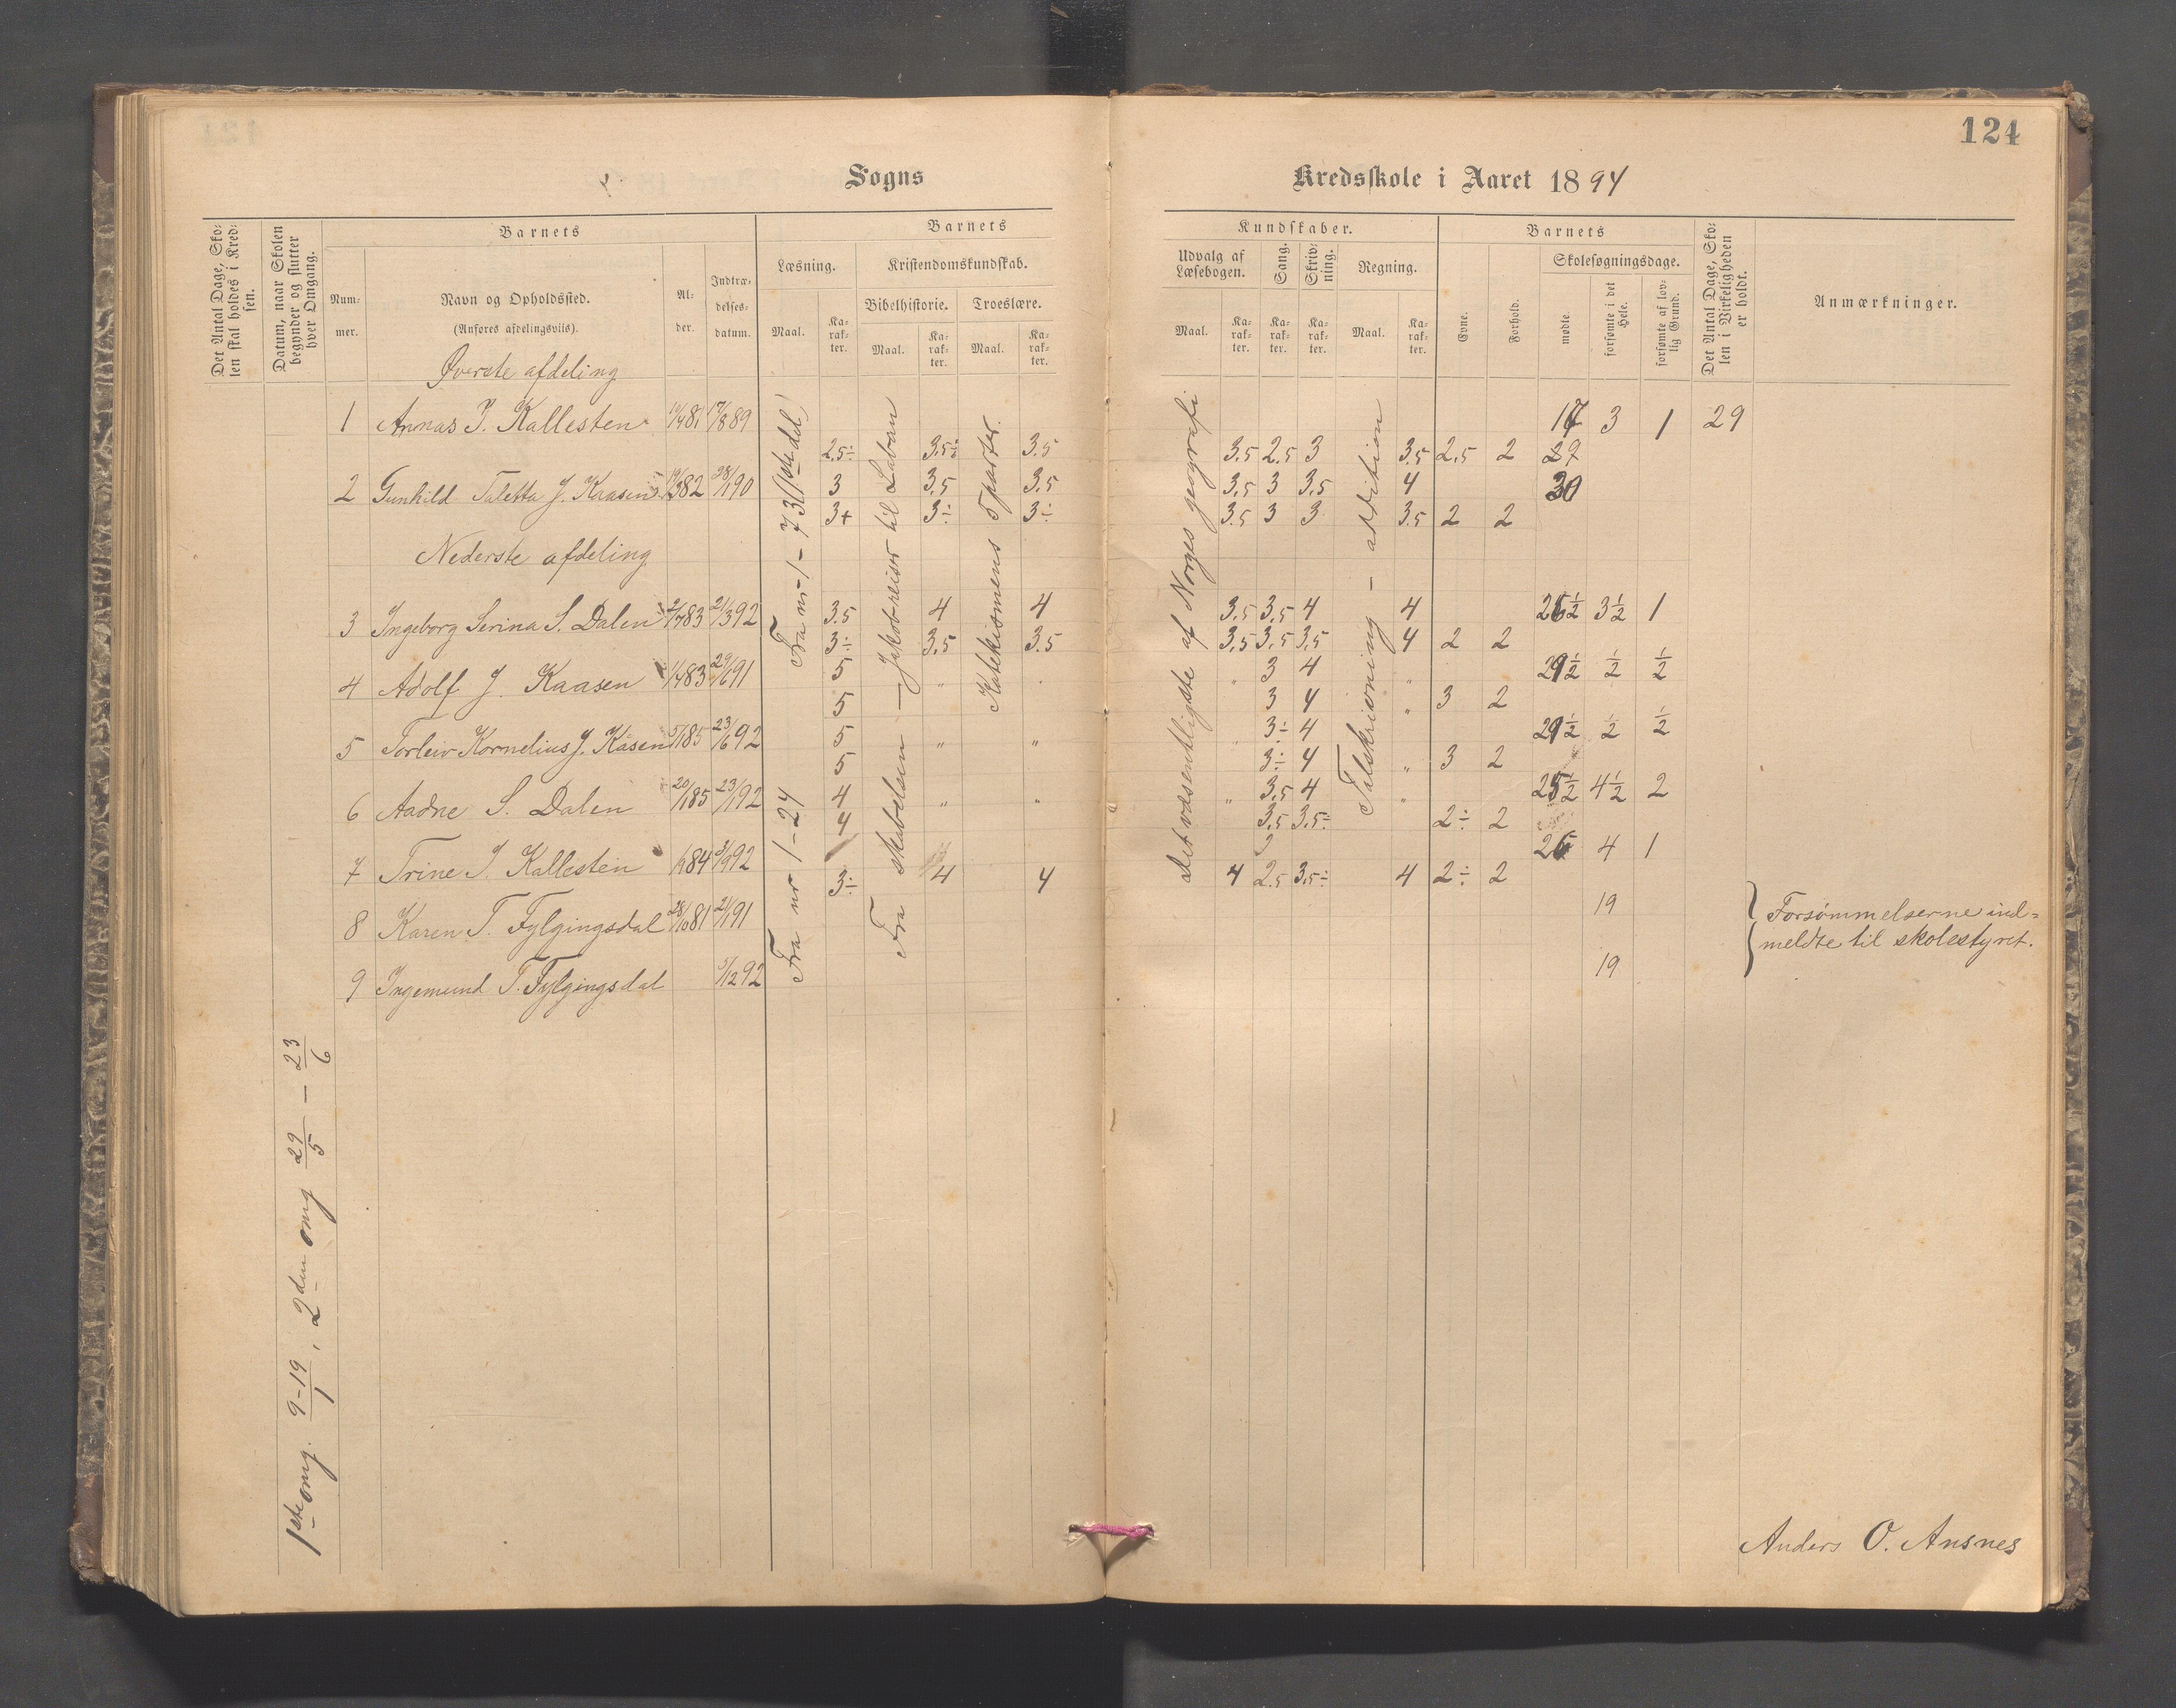 124
Sogns Kredsskole i Aaret 1894
Det Antal Dage, Skolen skal holdes i Kredsen.
Datum, naar Skolen begynder og slutter hver Omgang.
Barnets
Nummer.
Navn og Opholdssted.
(Anføres afdelingsvils).
Alder.
Indtrædelsesdatum.
Barnets Kundskaber.
Læsning.
Maal.
Karakter.
Kristendomskundskab.
Bibelhistorie.
Maal.
Karakter.
Troeslære.
Maal.
Karakter.
Udvalg af Læsebogen.
Maal.
Karakter.
Sang.
Karakter.
Skrivning.
Karakter.
Regning.
Maal.
Karakter.
Barnets
Evne.
Forhold.
Skolesøgningsdage.
mødte.
forsømte i det Hele.
forsømte af lovlig Grund.
Det Antal Dage, Skolen i Virkeligheden er holdt.
Anmærkninger.
Øverste afdeling
1 Annas J. Kallesten 17/8 89 17 3 1 29
2.5÷ 3.5÷ 3.5 3.5 2.5 3 3.5 2.5 2 29
2 Gunhild Taletta J. Kaasen 82 28/1 90 3 3.5 3.5 3.5 3 3.5 4 30
3+ 3÷ 3÷ 3.5 3 3 3.5 2 2
Nederste afdeling
3 Ingeborg Serina S. Dalen 83 21/3 92 3.5 4 4 3.5 3.5 4 4 26½ 3½ 1
3÷ 3.5 3.5 3.5 3.5 3.5 4 2 2
4 Adolf J. Kaasen 83 91 5 " " " 3 4 " 29½ ½ ½
5 3 4 " 3 2
5 Torleiv Kornelius J. Kåsen 85 23/6 92 5 " " " 3÷ 4 29½ ½ ½
5 3÷ 4 " 3 2
6 Aadne S. Dalen 20/1 85 23/1 92 4 " " " 3.5 4 " 25½ 4½ 2
4 3.5 3.5÷ 2÷ 2
7 Trine J. Kallesten 84 92 26 4 1
3÷ 4 4 4 2.5 3.5÷ 4 2÷ 2
8 Karen T. Fylgingsdal 28/10 81 2/1 91 19
9 Ingemund T. Fylgingsdal 5/12 92 19
Forsømmelserne ind=
meldte til skolestyret.
Fra nr 1 - 73 (1ste del)
Fra nr 1 - 24
Fra skabelsen - Jakobs reiser til Laban
Katekismens 5 parter.
Det væsentligste af Norges geografi
Talskrivning - addition
1ste omg. 9-19/1, 2den omg 29/5 - 23/6
Anders O. Ansnes